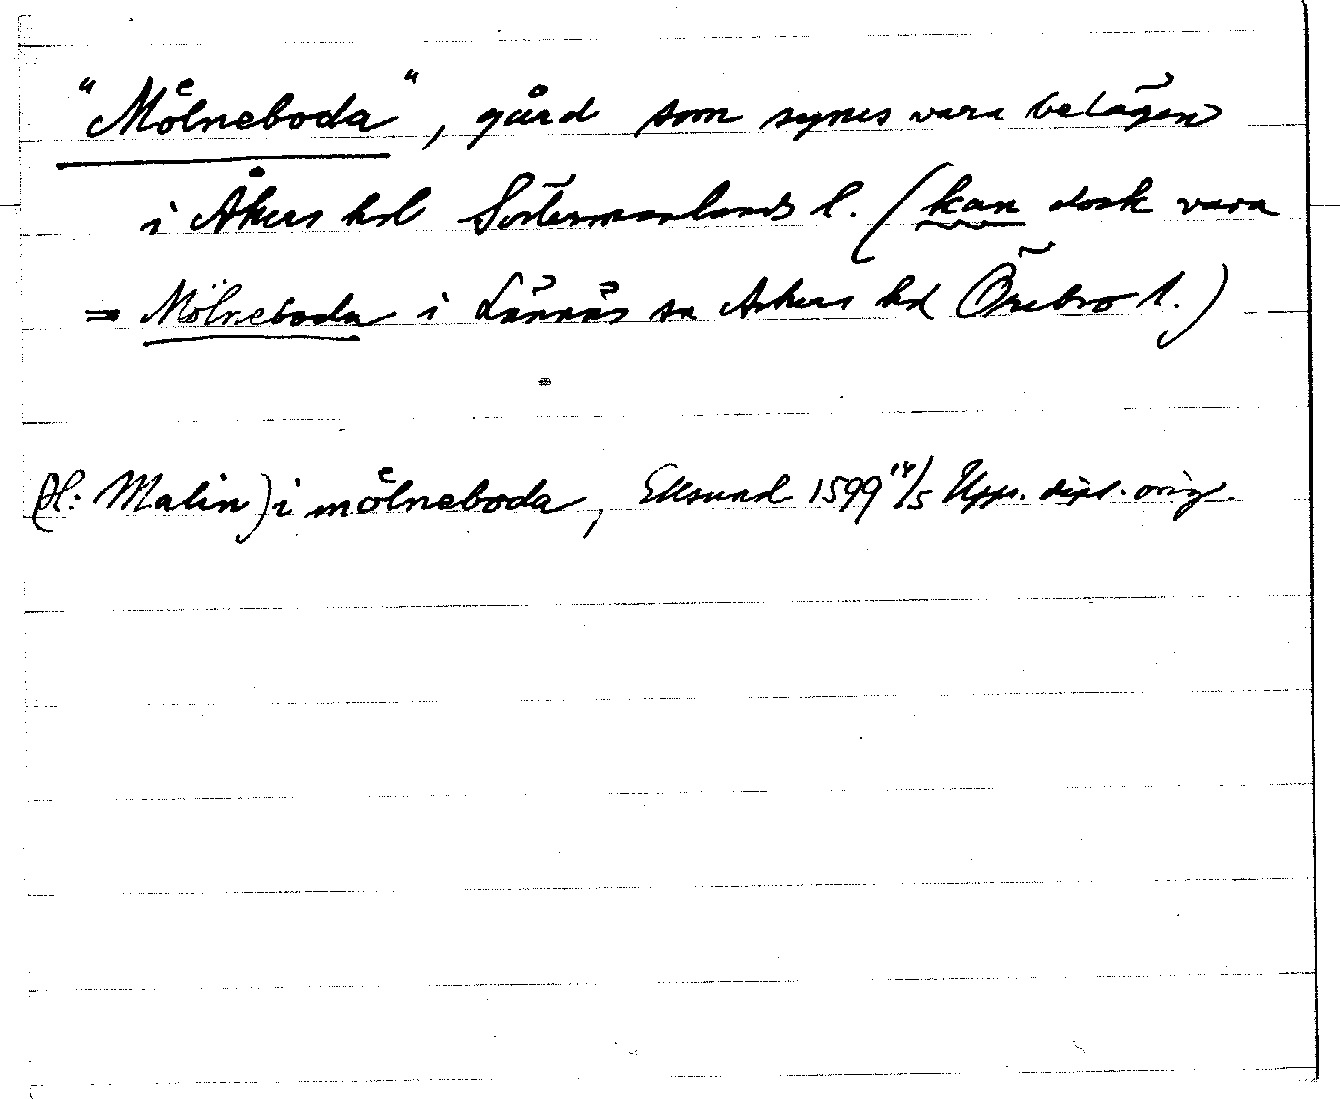 "Moͤlneboda", gård som synes vara belägen
i Åkers hd Södermanlands l. (kan dock vara
= Mölneboda i Lännäs sn Askers hd Örebro l.)
(H: Malin) i moͤlneboda, Eksund 1599 14/5 Upps. dipl. orig.